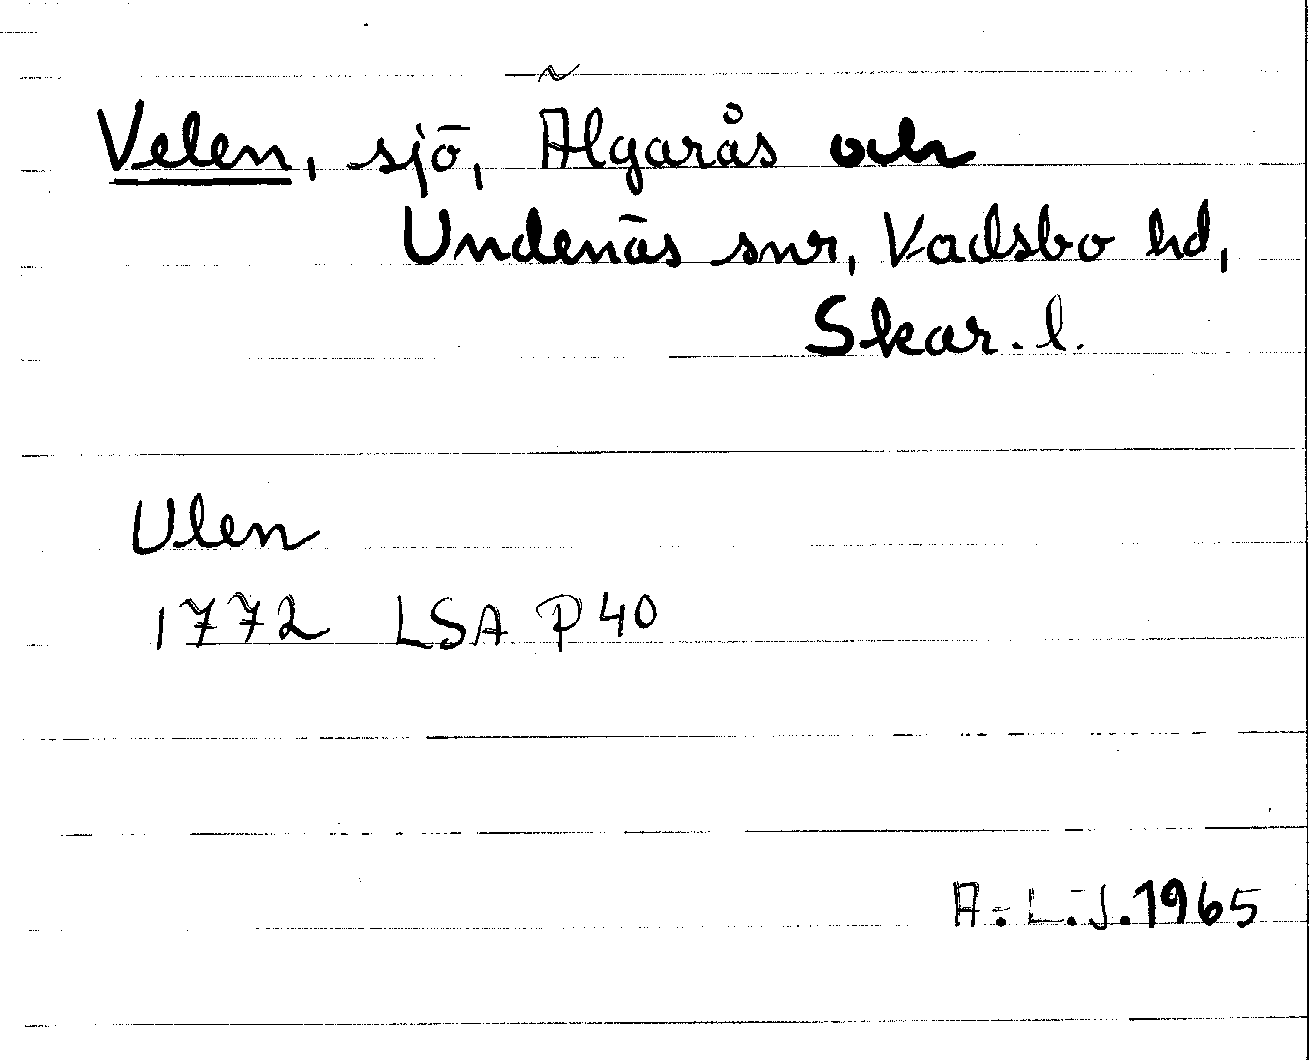 Velen, sjö, Älgarås och
Undenäs snr, Vadsbo hd,
Skar. l.
Ulen
1772 LSA P 40
A.-L. J. 1965